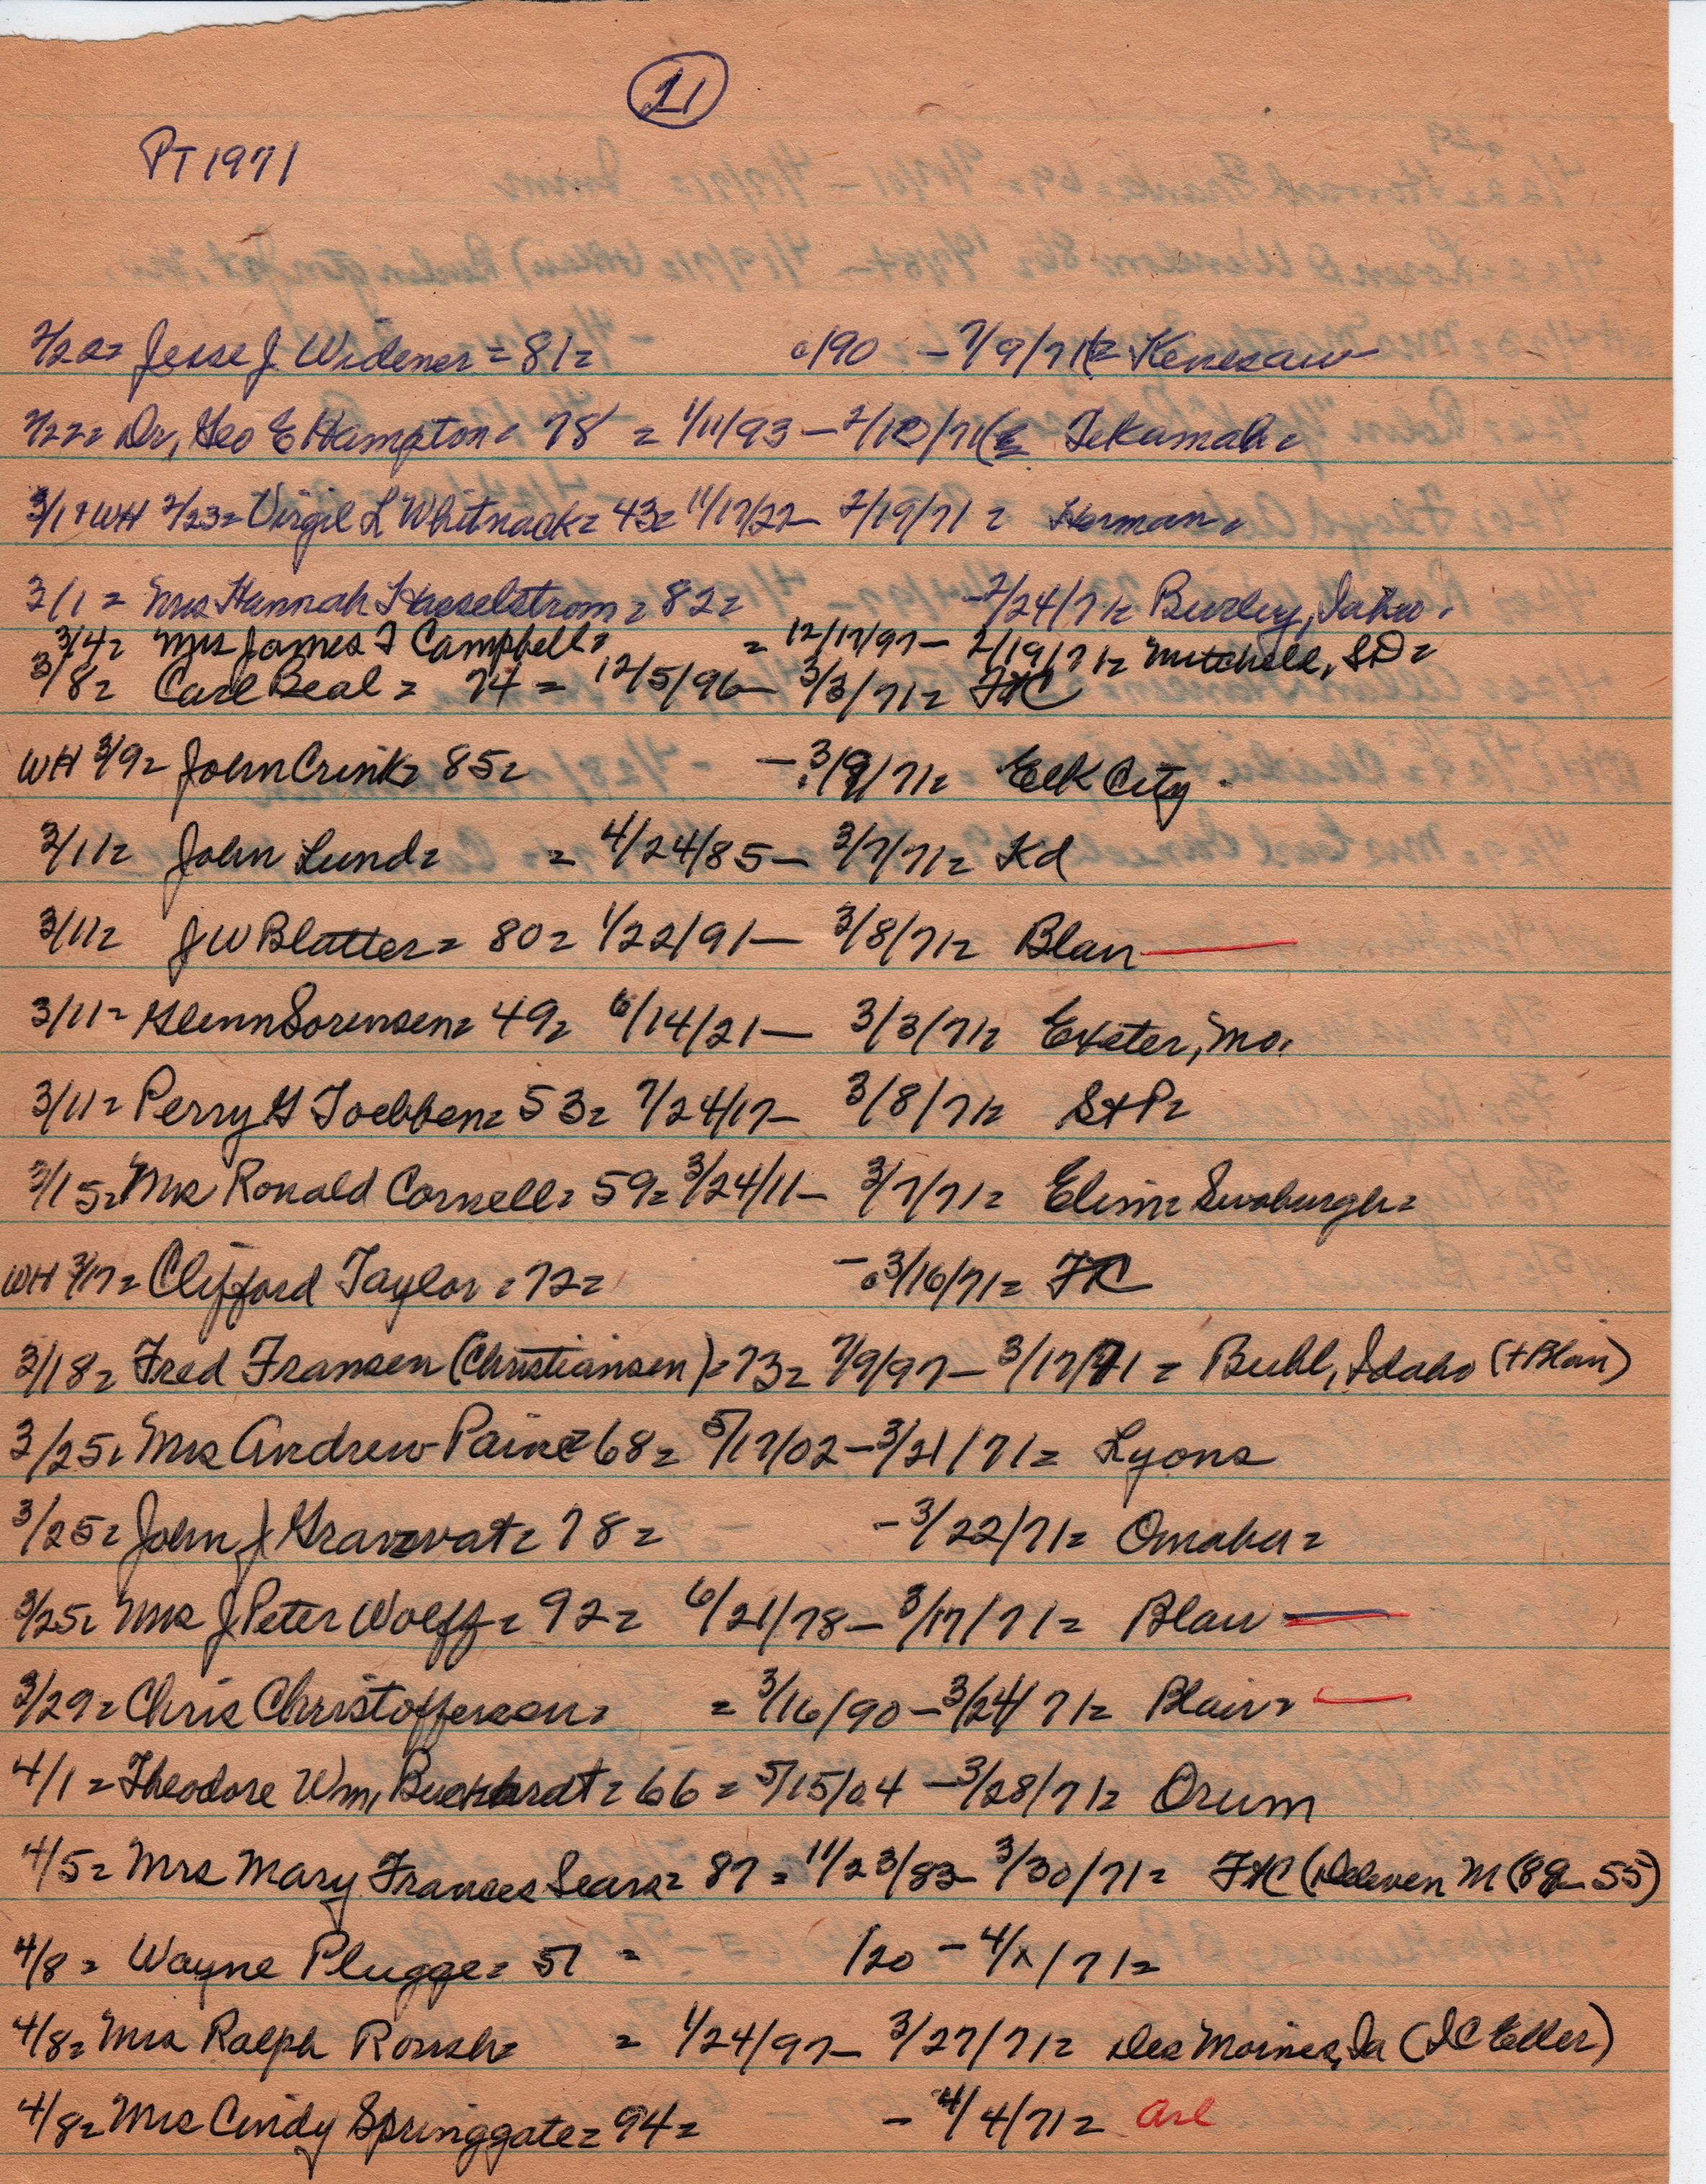 21
PT 1971
2/22= Jesse J. Widener = 81= c190 - 2/9/71= Kenesaw
2/22= Dr, Geo E Hampton= 78 = 1/11/93 - 2/10/71 Tekamah=
3/1 + WH 2/23= Virgil L Whitnack= 43= 11/17/27- 2/19/71= Herman=
3/1= Mrs Hannah Hasselstrom= 82= -2/24/71= Burley, Idaho.
3/4= Mrs James F Campbell= = 12/17/97- 2/19/71= Mitchell, SD=
3/8= Carl Beal= 74= 12/5/96- 3/3/71= FtC
WH 3/9= John Crink= 85= -3/9/71= Elk City.
3/11= John Lund= = 4/24/85- 3/7/71= Kd
3/11= J W Blatter= 80= 1/22/91- 3/8/71= Blair
3/11= Glenn Sorensen= 49= 6/14/21- 3/3/71= Exeter, Mo.
3/11= Perry G Toebben= 53= 7/24/17- 3/8/71= S+P=
3/15= Mrs Ronald Cornell= 59= 3/24/11- 3/7/71= Elim= Swaburgh=
WH 3/17= Clifford Taylor= 72= - 3/16/71= FtC
3/18= Fred Fransen (Christiansen)= 73= 7/9/97- 3/17/71= Buhl, Idaho (+Blair)
3/25= Mrs Andrew Paine= 68= 5/17/02-3/21/71= Lyons
3/25= John J Gravzvat= 78= -3/22/71= Omaha=
3/25= Mrs J Peter Wolff= 92= 6/21/78- 3/17/71= Blair
3/29= Chris Christofferson= = 3/16/90-3/24/71= Blair=
4/1= Theodore Wm, Buckhardt= 66= 5/15/04 -3/28/71= Orum
4/5= Mrs Mary Frances Sears= 87= 11/23/83- 3/30/71= FtC (Deleven M (88-55)
4/8= Wayne Plugge= 51 = 120 - 4/x/71=
4/8= Mrs Ralph Roush= = 1/24/97- 3/27/71= Des Moines, Ia (IC Eller)
4/8= Mrs Cindy Springgate= 94= - 4/4/71= Arl